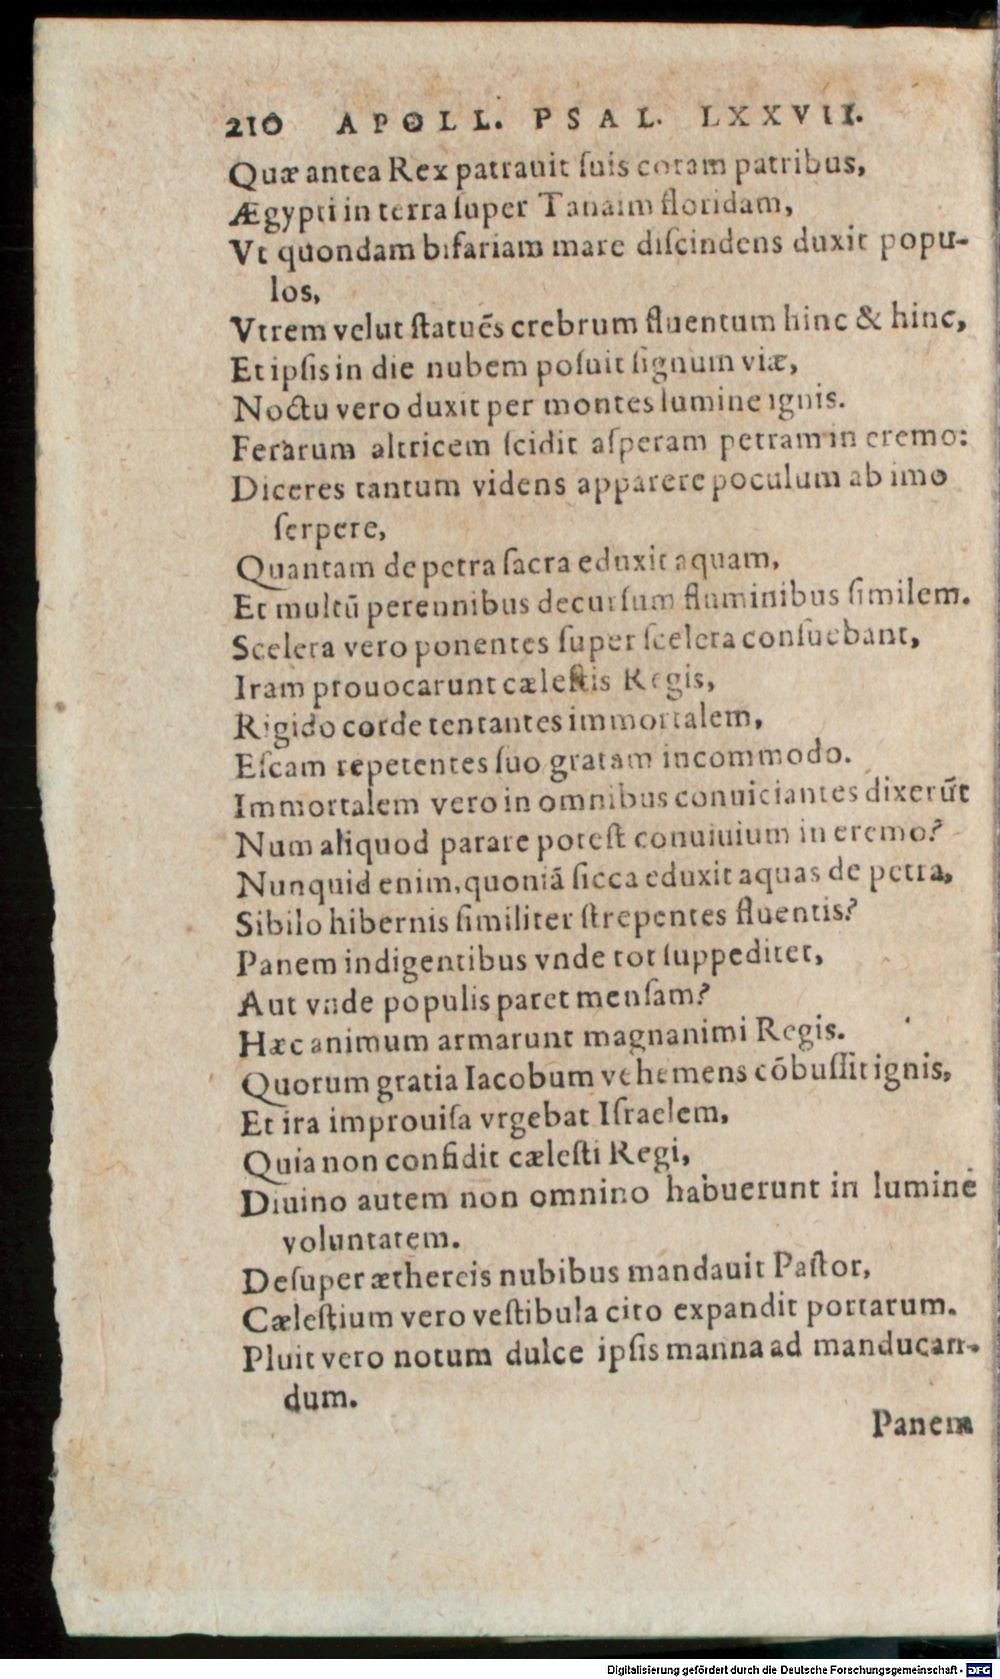 210 APOLL. PSAL. LXXVII.
Quæ antea Rex patrauit ſuis coram patribus,
Ægypti in terra ſuper Tanaim floridam,
Vt quondam bifariam mare diſcindens duxit popu-
los,
Vtrem velut ſtatuẽs crebrum fluentum hinc & hinc,
Et ipſis in die nubem poſuit ſignum viæ,
Noctu vero duxit per montes lumine ignis.
Ferarum altricem ſcidit aſperam petram in eremo:
Diceres tantum videns apparere poculum ab imo
ſerpere,
Quantam de petra ſacra eduxit aquam,
Et multũ perennibus decurſum fluminibus ſimilem.
Scelera vero ponentes ſuper ſcelera conſuebant,
Iram prouocarunt cæleſtis Regis,
Rigido corde tentantes immortalem,
Eſcam repetentes ſuo gratam incommodo.
Immortalem vero in omnibus conuiciantes dixerũt
Num aliquod parare poteſt conuiuium in eremo?
Nunquid enim, quoniã ſicca eduxit aquas de petra,
Sibilo hibernis ſimiliter ſtrepentes fluentis?
Panem indigentibus vnde tot ſuppeditet,
Aut vnde populis paret menſam?
Hæc animum armarunt magnanimi Regis.
Quorum gratia Iacobum vehemens cõbuſſit ignis,
Et ira improuiſa vrgebat Iſraelem,
Quia non confidit cæleſti Regi,
Diuino autem non omnino habuerunt in lumine
voluntatem.
Deſuper æthereis nubibus mandauit Paſtor,
Cæleſtium vero veſtibula cito expandit portarum.
Pluit vero notum dulce ipſis manna ad manducan-
dum.
Panem
Digitalisierung gefördert durch die Deutsche Forschungsgemeinschaft - DFG